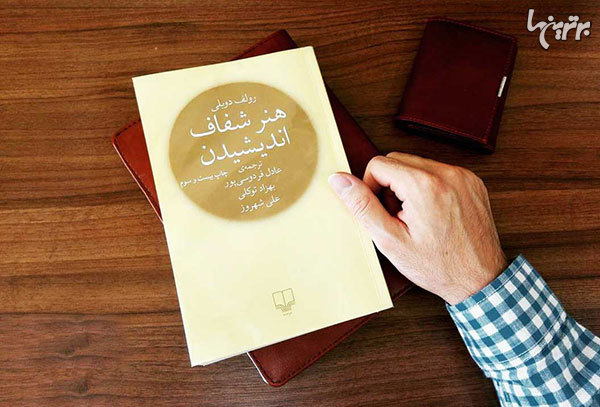 برترینها
رولف دوبلی
هنر شفاف
اندیشیدن
ترجمه‌ی
چاپ بیست و سوم
عادل فردوسی‌پور
بهزاد توکلی
علی شهروز